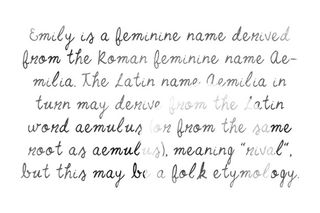 Emily is a feminine name derived
from the Roman feminine name Ae-
milia. The Latin name Aemilia in
turn may derive from the Latin
word aemulus (or from the same
root as aemulus), meaning "rival",
but this may be a folk etymology.